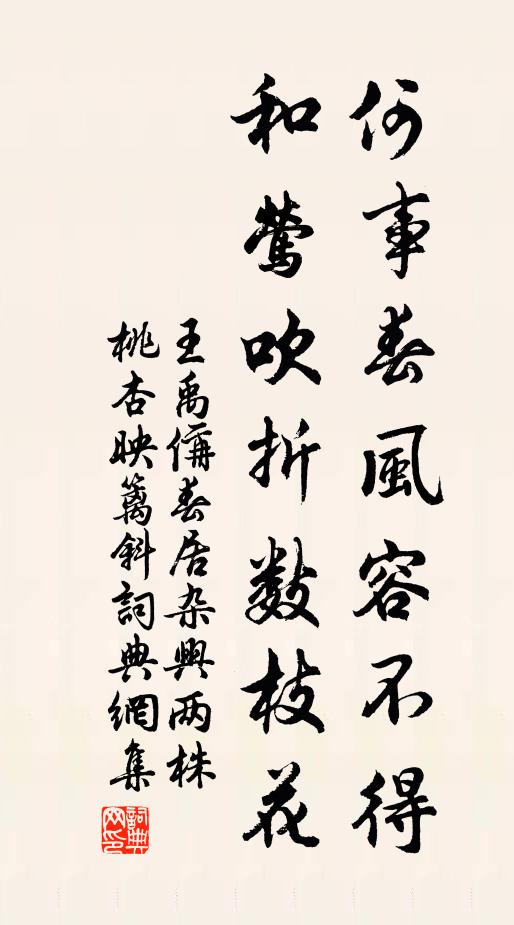 何事春風容不得
和鶯吹折数枝花
王禹偁春居杂興两株
桃杏映籬斜詞典網集
詞典
网印